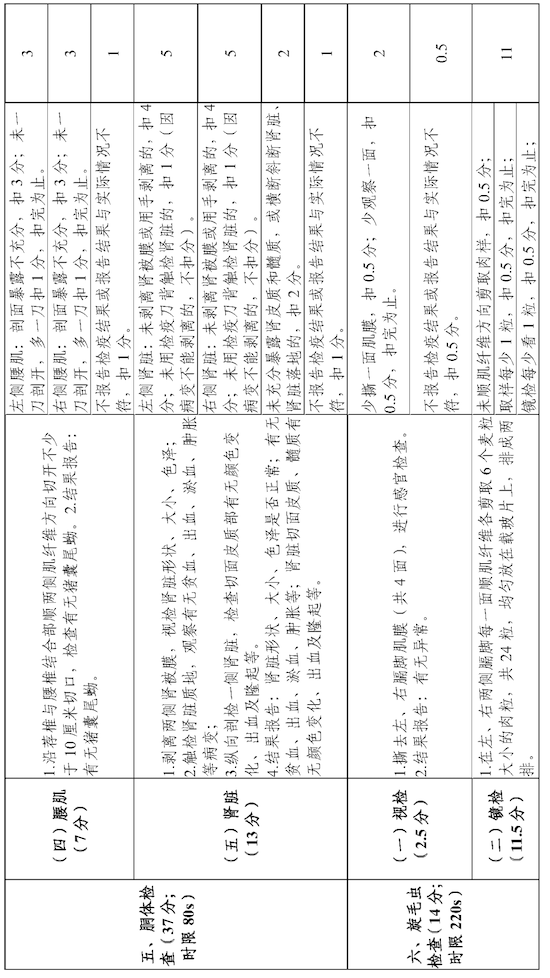 五、胴体检
查（37分；
时限 80s）
（四）腰肌
（7分）
1.沿荐椎与腰椎结合部顺两侧肌纤维方向切开不少
于 10 厘米切口，检查有无猪囊尾蚴。2.结果报告：
有无猪囊尾蚴。
左侧腰肌：剖面暴露不充分，扣 3 分；未一
刀剖开，多一刀扣 1 分，扣完为止。
3
右侧腰肌：剖面暴露不充分，扣 3 分；未一
刀剖开，多一刀扣 1 分，扣完为止。
3
不报告检疫结果或报告结果与实际情况不
符，扣 1 分。
1
（五）肾脏
（13 分）
1.剥离两侧肾被膜，视检肾脏形状、大小、色泽；
2.触检肾脏质地，观察有无贫血、出血、淤血、肿胀
等病变；
3.纵向剖检一侧肾脏，检查切面皮质部有无颜色变
化、出血及隆起等。
4.结果报告：肾脏形状、大小、色泽是否正常；有无
贫血、出血、淤血、肿胀等；肾脏切面皮质、髓质有
无颜色变化、出血及隆起等。
左侧肾脏：未剥离肾被膜或用手剥离的，扣 4
分；未用检疫刀背触检肾脏的，扣 1 分（因
病变不能剥离的，不扣分）。
5
右侧肾脏：未剥离肾被膜或用手剥离的，扣 4
分；未用检疫刀背触检肾脏的，扣 1 分（因
病变不能剥离的，不扣分）。
5
未充分暴露肾皮质和髓质，或横断斜断肾脏、
肾脏落地的，扣 2 分。
2
不报告检疫结果或报告结果与实际情况不
符，扣 1 分。
1
六、旋毛虫
检查（14 分；
时限 220s）
（一）视检
（2.5 分）
1.撕去左、右膈脚肌膜（共 4 面），进行感官检查。
2.结果报告：有无异常。
少撕一面肌膜，扣 0.5 分；少观察一面，扣
0.5 分，扣完为止。
2
不报告检疫结果或报告结果与实际情况不
符，扣 0.5 分。
0.5
（二）镜检
（11.5 分）
1.在左、右两侧膈脚每一面顺肌纤维各剪取 6 个麦粒
大小的肉粒，共 24 粒，均匀放在载玻片上，排成两
排。
未顺肌纤维方向剪取肉样，扣 0.5 分；
取样每少 1 粒，扣 0.5 分，扣完为止；
镜检每少看 1 粒，扣 0.5 分，扣完为止；
11